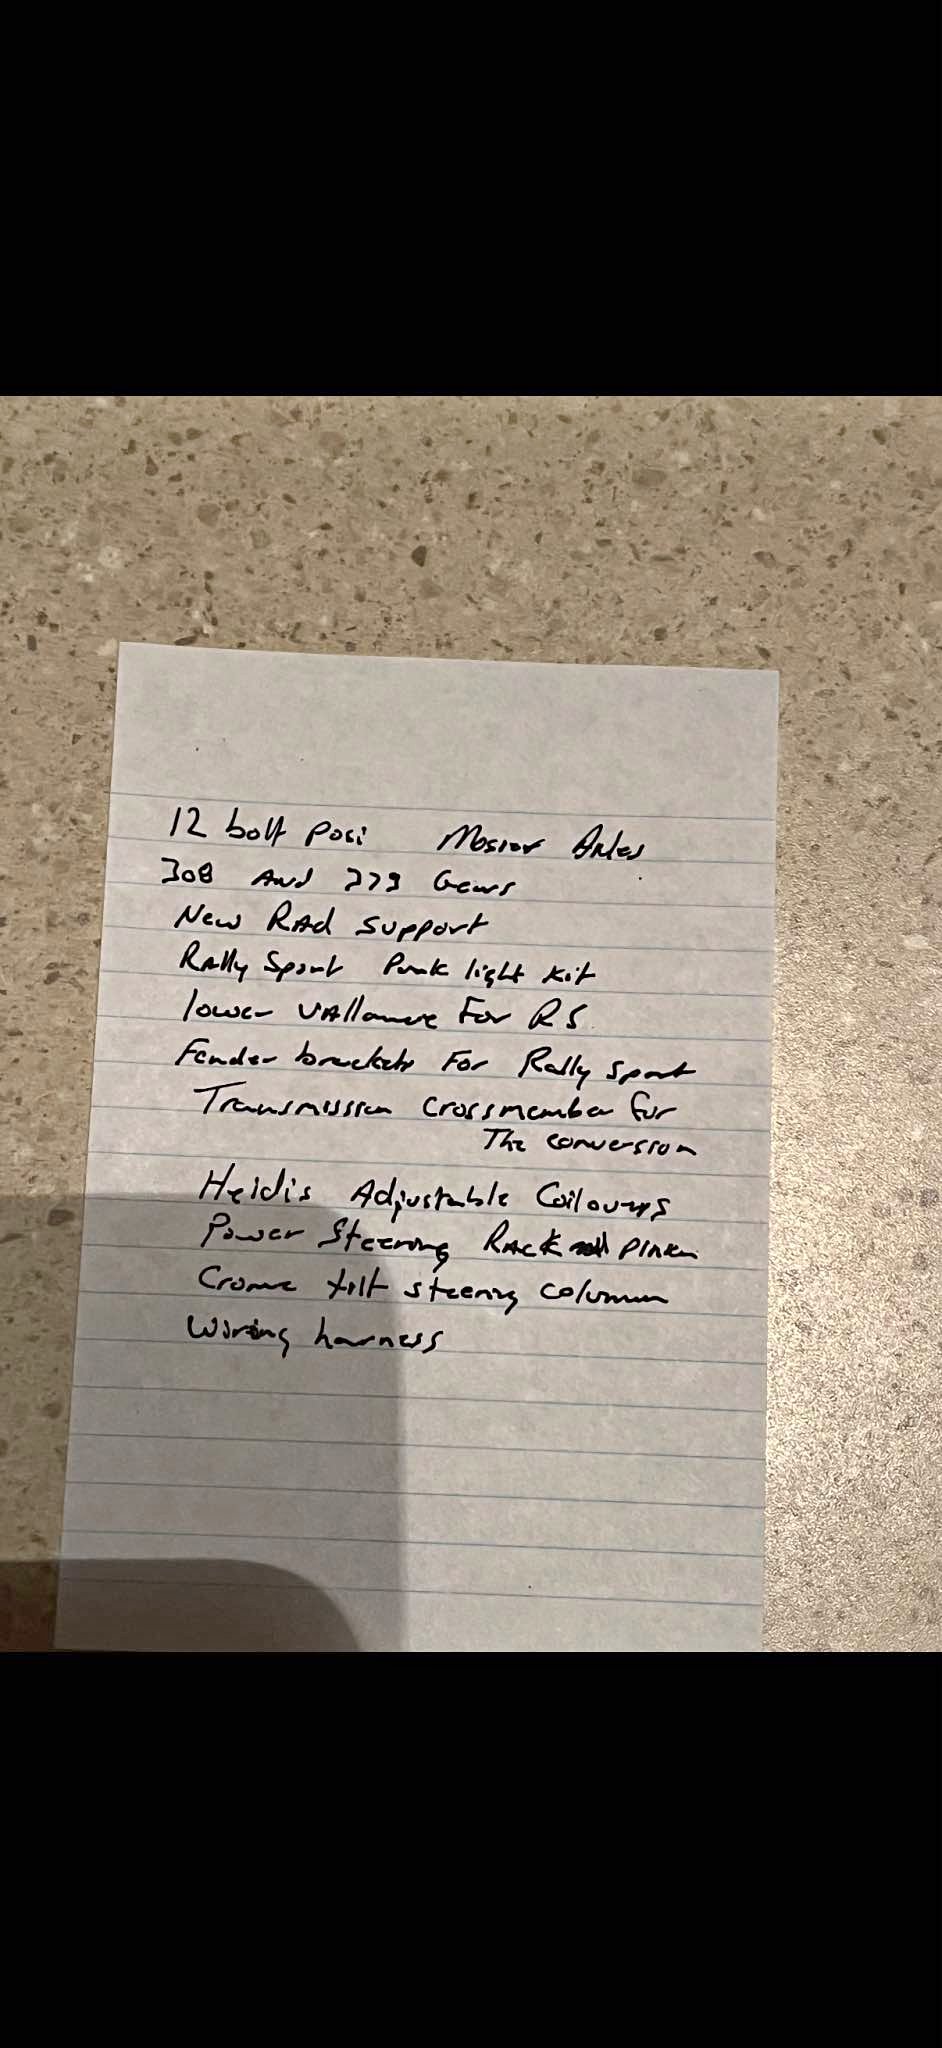 12 bolt Posi Mosior Axles
308 And 373 Gears
New RAd support
Rally Sport Park light kit
lower vallance For RS
Fender brackets For Rally sport
Transmission crossmember for
The conversion
Heidis Adjustable Coilovers
Power Steering Rack pinion
Crome tilt steering column
Wiring harness